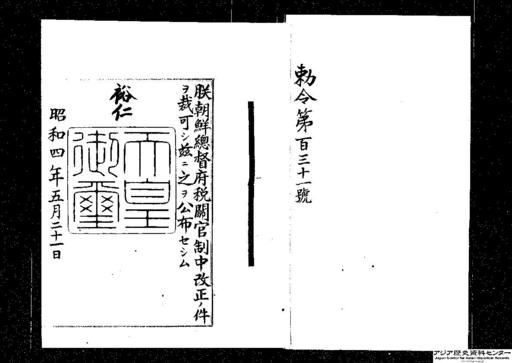 勅令第百三十一號
朕朝鮮總督府税關官制中改正ノ件
ヲ裁可シ茲ニ之ヲ公布セシム
裕仁
天皇
御璽
昭和四年五月二十一日
アジア歴史資料センター
Japan Center for Asian Historical Records